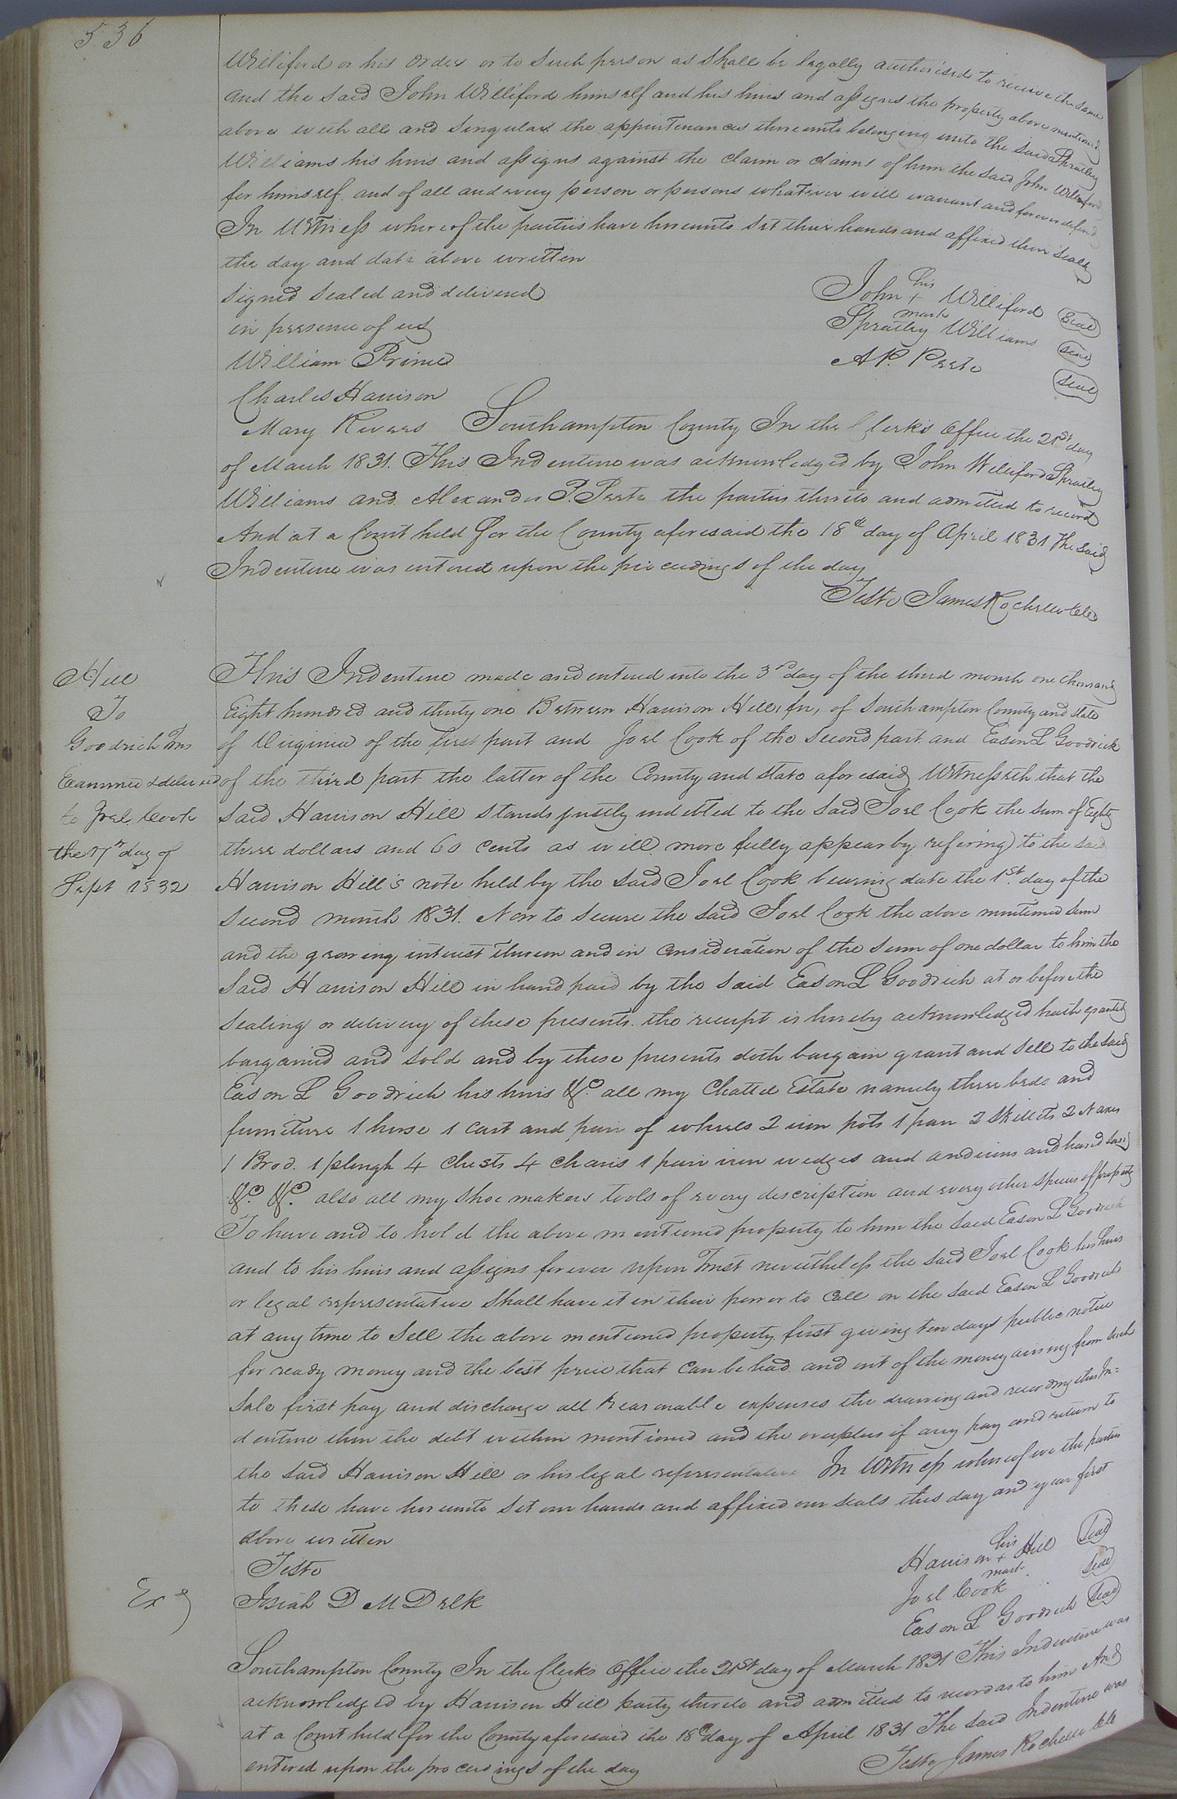 536
Williford or his order or to such person as shall be legally authorised to receive the same
and the said John Williford himself and his heirs and assigns the property above mentioned
above with all and singular the appurtenances thereunto belonging unto the said Spratley
Williams his heirs and assigns against the claim or claims of him the said John Williford
for himself and of all and every person or persons whatever will warrant and forever defend
In Witness whereof the parties have hereunto set their hands and affixed their seals
the day and date above written
signed sealed and delivered
in presence of us
William Prince
Charles Harrison
Mary Rivers
his
John + Williford Seal
mark
Spratley Williams Seal
A P. Peete Seal
Southampton County In the Clerks Office the 21st day
of March 1831. This Indenture was acknowledged by John Williford Spratley
Williams and Alexander P. Peete the parties thereto and admitted to record
And at a Court held for the County aforesaid the 18th day of April 1831 The said
Indenture was entered upon the proceedings of the day
Teste James Rochelle Clk
Hill
To
Goodrich Trus
Examined & delivered
to Joel Cook
the 17th day of
Sept 1832
This Indenture made and entered into the 3rd day of the third month one thousand
Eight hundred and thirty one Between Harrison Hill, fn, of Southampton County and State
of Virginia of the first part and Joel Cook of the second part and Eason L Goodrich
of the third part the latter of the County and State aforesaid Witnesseth that the
said Harrison Hill stands justly indebted to the said Joel Cook the sum of Eighty
three dollars and 60 cents as will more fully appear by refering to the said
Harrison Hill's note held by the said Joel Cook bearing date the 1st day of the
second month 1831. Now to secure the said Joel Cook the above mentioned sum
and the growing interest thereon and in consideration of the sum of one dollar to him the
said Harrison Hill in hand paid by the said Eason L Goodrich at or before the
sealing or delivery of these presents the receipt is hereby acknowledged hath granted
bargained and sold and by these presents doth bargain grant and sell to the said
Eason L Goodrich his heirs &c. all my Chattel Estate namely three beds and
furniture 1 horse 1 cart and pair of wheels 2 iron pots 1 pan 2 skillets 2 axes
1 Broad. 1 plough 4 chests 4 chairs 1 pair iron wedges and andirons and hand saw
&c. &c. also all my shoe makers tools of every description and every other species of property
To have and to hold the above mentioned property to him the said Eason L Goodrich
and to his heirs and assigns forever upon Trust nevertheless the said Joel Cook his heirs
or legal representative shall have it in their power to call on the said Eason L Goodrich
at any time to sell the above mentioned property first giving ten days public notice
for ready money and the best price that can be had and out of the money arising from such
sale first pay and discharge all reasonable expenses the drawing and recording this In=
denture then the debt within mentioned and the overplus if any pay and return to
the said Harrison Hill or his legal representative In Witness whereof we the parties
to these have hereunto set our hands and affixed our seals this day and year first
above written
Teste
Josiah D M Delk
Exd
his
Harrison + Hill Seal
mark.
Joel Cook Seal
Eason L Goodrich Seal
Southampton County In the Clerks Office the 21st day of March 1831 This Indenture was
acknowledged by Harrison Hill party thereto and admitted to record as to him And
at a Court held for the County aforesaid the 18th day of April 1831 The said Indenture was
entered upon the proceedings of the day
Teste James Rochelle Clk